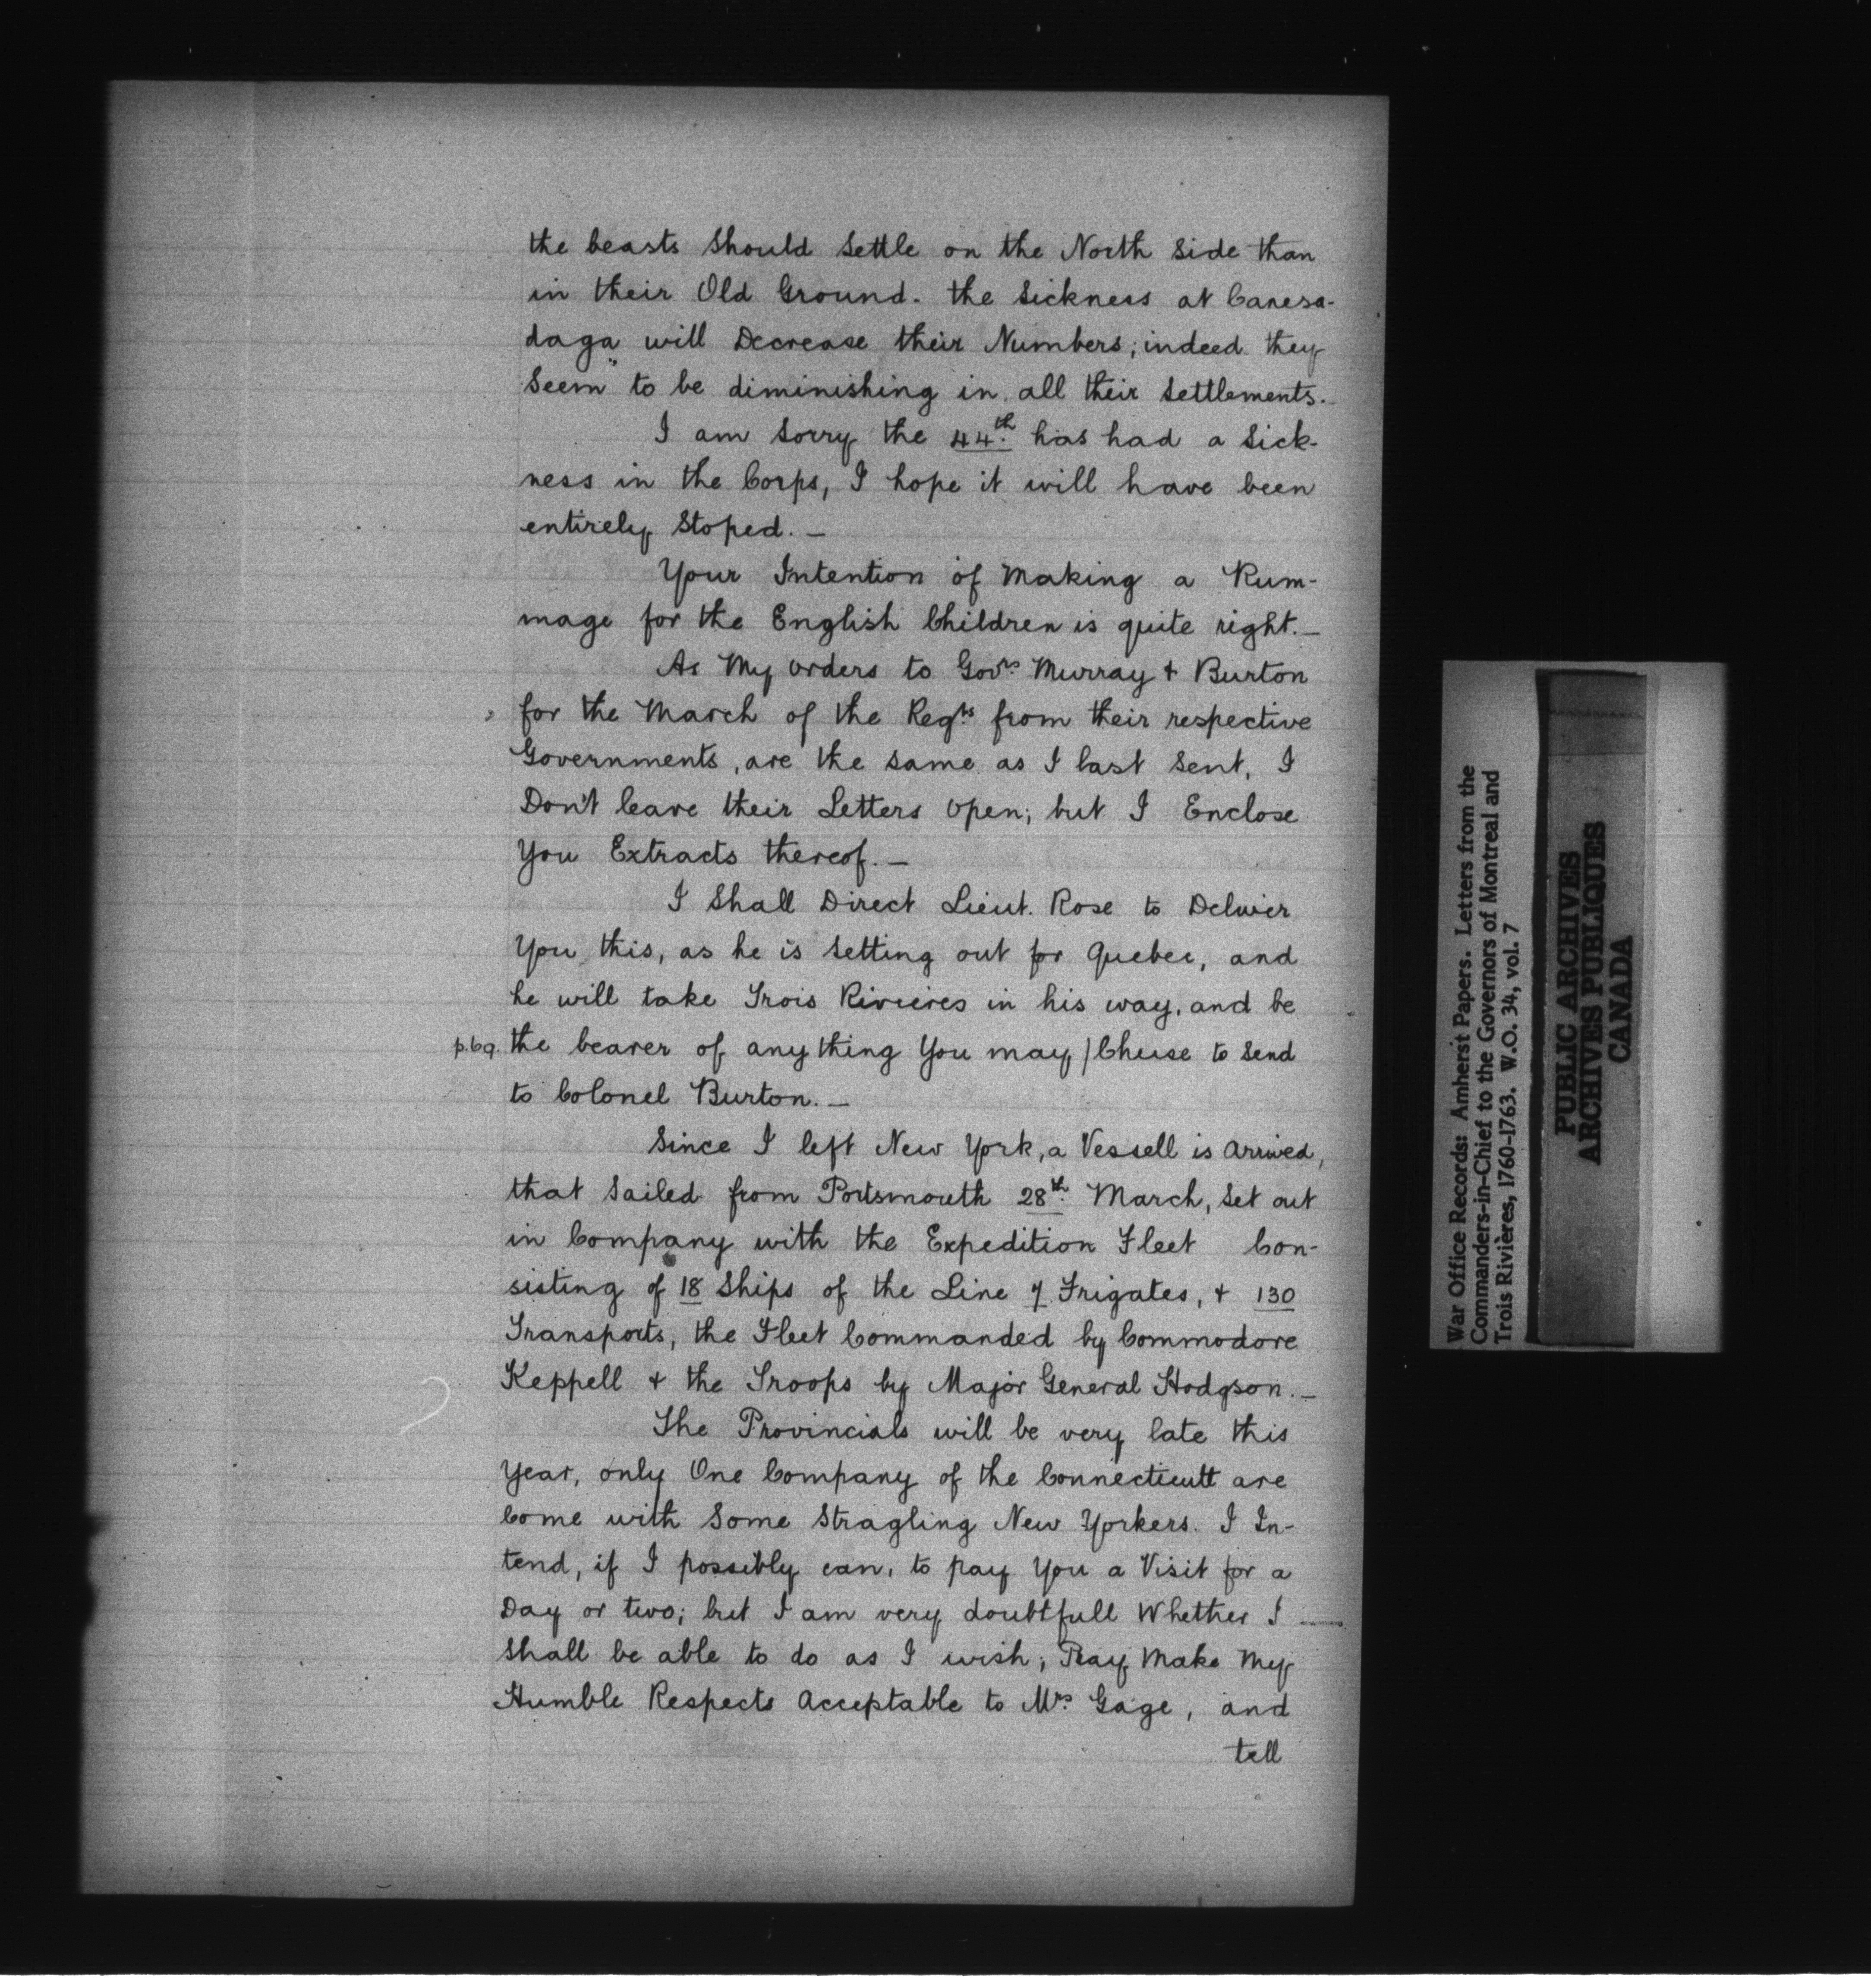 the beasts Should Settle on the North Side than
in their Old Ground. the Sickness at Canesa-
daga will Decrease their Numbers; indeed they
Seem to be diminishing in all their Settlements.
I am Sorry the 44th. has had a Sick-
ness in the Corps, I hope it will have been
entirely Stoped. —
Your Intention of Making a Rum-
mage for the English Children is quite right. —
As My orders to Govrs. Murray + Burton
for the March of the Regts from their respective
Governments, are the same as I last Sent, I
Don't leave their Letters open; but I Enclose
You Extracts thereof. —
I Shall Direct Lieut. Rose to Deliver
You this, as he is Setting out for Quebec, and
he will take Trois Rivieres in his way, and be
p.69. the bearer of any thing You may / Chuse to Send
to Colonel Burton. —
Since I left New York, a Vessell is Arrived,
that Sailed from Portsmouth 28th. March, Set out
in Company with the Expedition Fleet Con-
sisting of 18 Ships of the Line 7 Frigates, + 130
Transports, the Fleet Commanded by Commodore
Keppell + the Troops by Major General Hodgson. —
The Provincials will be very late this
Year, only One Company of the Connecticutt are
Come with Some Stragling New Yorkers. I In-
tend, if I possibly can, to pay You a Visit for a
Day or two; but I am very doubtfull Whether I
Shall be able to do as I wish; Pray Make My
Humble Respects Acceptable to Mrs. Gage, and
tell
War Office Records: Amherst Papers. Letters from the
Commanders-in-Chief to the Governors of Montreal and
Trois Rivières, 1760-1763. W.O. 34, vol. 7
PUBLIC ARCHIVES
ARCHIVES PUBLIQUES
CANADA